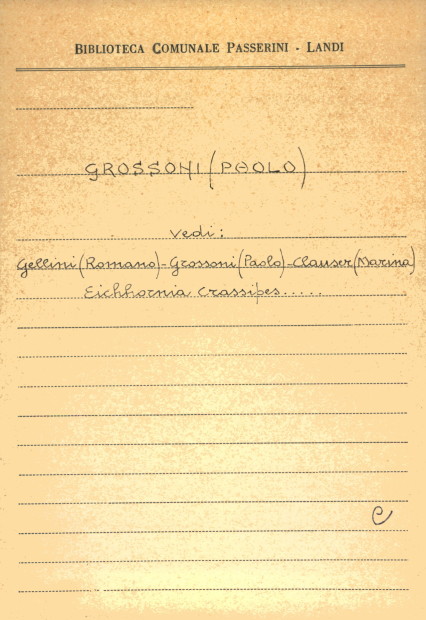 BIBLIOTECA COMUNALE PASSERINI - LANDI
GROSSONI (PAOLO)
Vedi:
Gellini (Romano) - Grossoni (Paolo) - Clauser (Marina)
Eichhornia crassipes.....
C